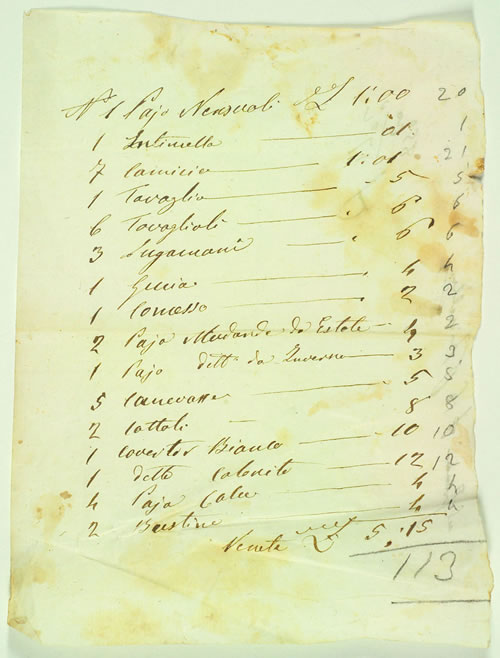 N° 1 Pajo Nensuoli L 1:00 20
1 Intimella 01 1
7 Camicie 1:01 21
1 Tovaglia 5 5
6 Tovaglioli 6 6
3 Sugamani 6 6
1 4 4
1 2 2
2 Pajo Mudande da Estate 4 2
1 Pajo dette da Inverno 3 3
5 Canevasse 5 8
2 8 8
1 Covertor Bianco 10 10
1 detto Colorito 12 12
4 Paja Calce 4 4
2 Bustine 4 4
Venete L 5:15
113